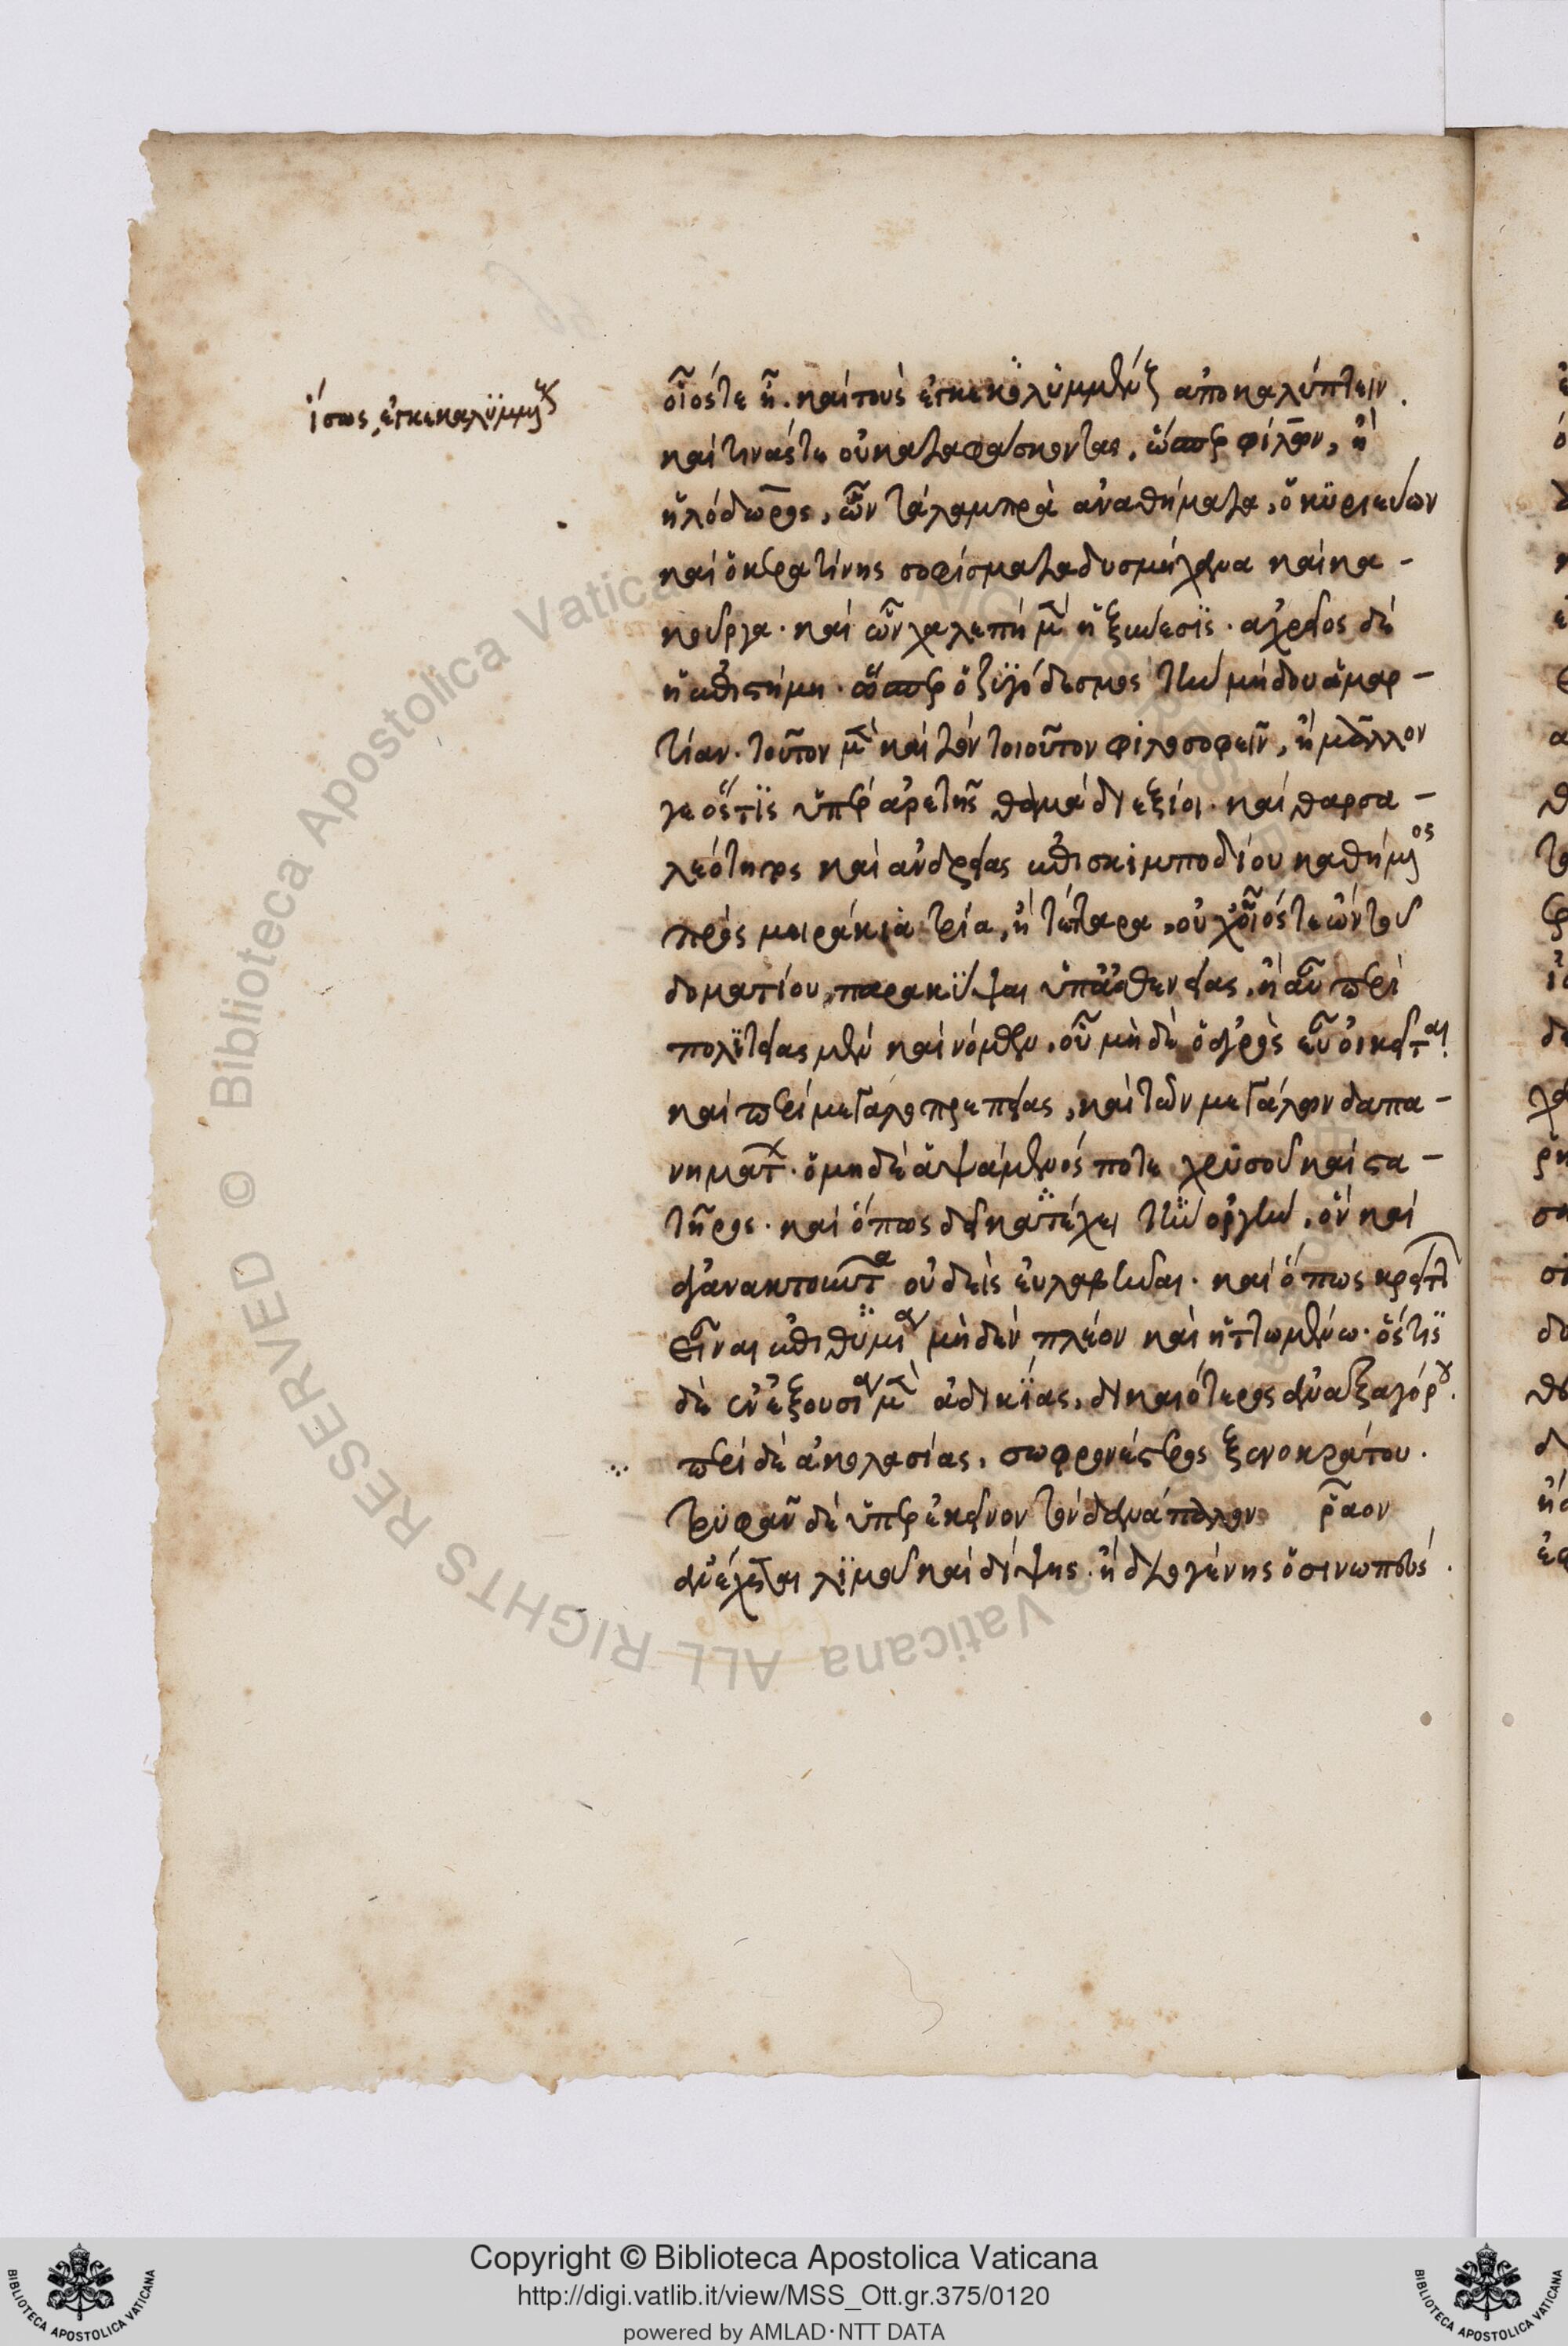 ἴσως, ἐγκεκαλυμμένους
οἷός τε ᾖ. καὶ τοὺς ἐγκεκαλυμμένους ἀποκαλύπτειν.
καὶ τινας τε οὐ καταφάσκοντας, ὥσπερ φίλων, ἢ
ἡλιόδωρος, ὧν τὰ λαμπρὰ ἀναθήματα, ὁ κυριεύων
καὶ ὁ κερατίνης σοφίσματα δυσμήχανα καὶ πα-
νοῦργα. καὶ ὧν χαλεπὴ μὲν ἡ ἕξις ἄχρεῖος δὲ
ἡ ἐπιστήμη. ὥσπερ ὁ ζυγόδεσμος τὴν μήδου ἁμαρ-
τίαν. τοῦτον μὲν καὶ τὸν τοιοῦτον φιλοσοφεῖν, ἢ μᾶλλον
γε ὅστις ὑπὲρ ἀρετῆς θαμὰ διεξίοι. καὶ θαρσα-
λεότητος καὶ ἀνδρείας ἐπὶ σκιμποδίου καθήμενος
πρὸς μειράκια τρία, ἢ τέτταρα, οὐχ οἷός τε ὢν τοῦ
δοματίου, παρακύψαι ὑπ' ἀσθενείας, ἢ αὖ περὶ
πολιτείας μὲν καὶ νόμων, οὗ μὴ δὲ ὁ ἀγρὸς εὖ οἰκεῖται
καὶ περὶ μεγαλοπρεπείας, καὶ τῶν μεγάλων δαπα-
νημάτων. ὁ μηδὲ ἁψάμενός ποτε χρυσοῦ καὶ στα-
τῆρος. καὶ ὅπως δεῖ κατέχει τὴν ὀργὴν, ὃν καὶ
ἀγανακτοῦντα οὐδεὶς εὐλαβεῖται. καὶ ὅπως κρείττω
εἶναι ἐπιθυμιῶν μὴδὲν πλέον καὶ ἡττωμένω. ὅστις
δὲ ἐν ἐξουσίᾳ μὲν ἀδικίας, δικαιότερος ἀναξαγόρου.
περὶ δὲ ἀκολασίας, σωφρονέστερος ξενοκράτου.
τρυφᾶν δὲ ὑπὲρ ἐκεῖνον τὸν δεῖνα πόλον ῥᾶον
ἀνέχεται λιμοῦ καὶ δίψης. ἢ διογένης ὁ σινωπεύς.
Copyright © Biblioteca Apostolica Vaticana
http://digi.vatlib.it/view/MSS_Ott.gr.375/0120
powered by AMLAD·NTT DATA
BIBLIOTECA APOSTOLICA VATICANA
BIBLIOTECA APOSTOLICA VATICANA
© Biblioteca Apostolica Vaticana ALL RIGHTS RESERVED